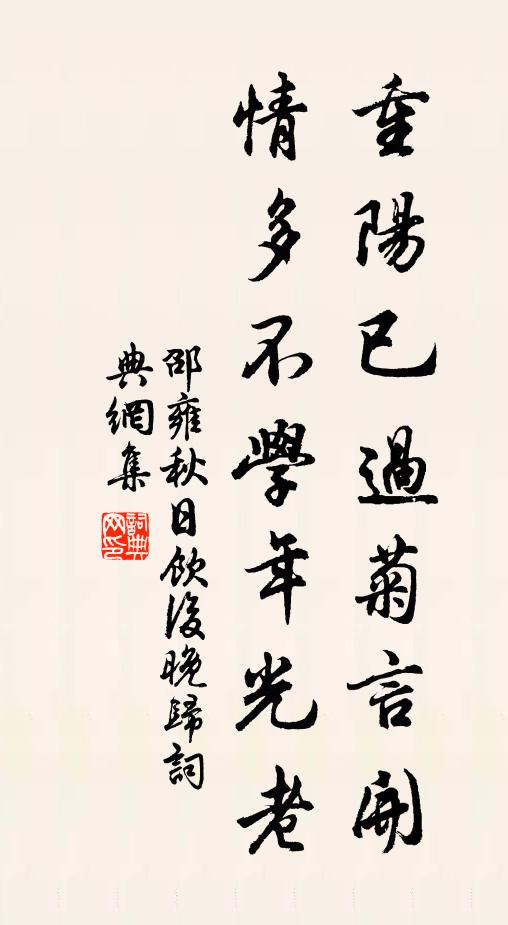 重陽已過菊言開
情多不學年光老
邵雍秋日飲後晚歸詞
典網集
詞典網印